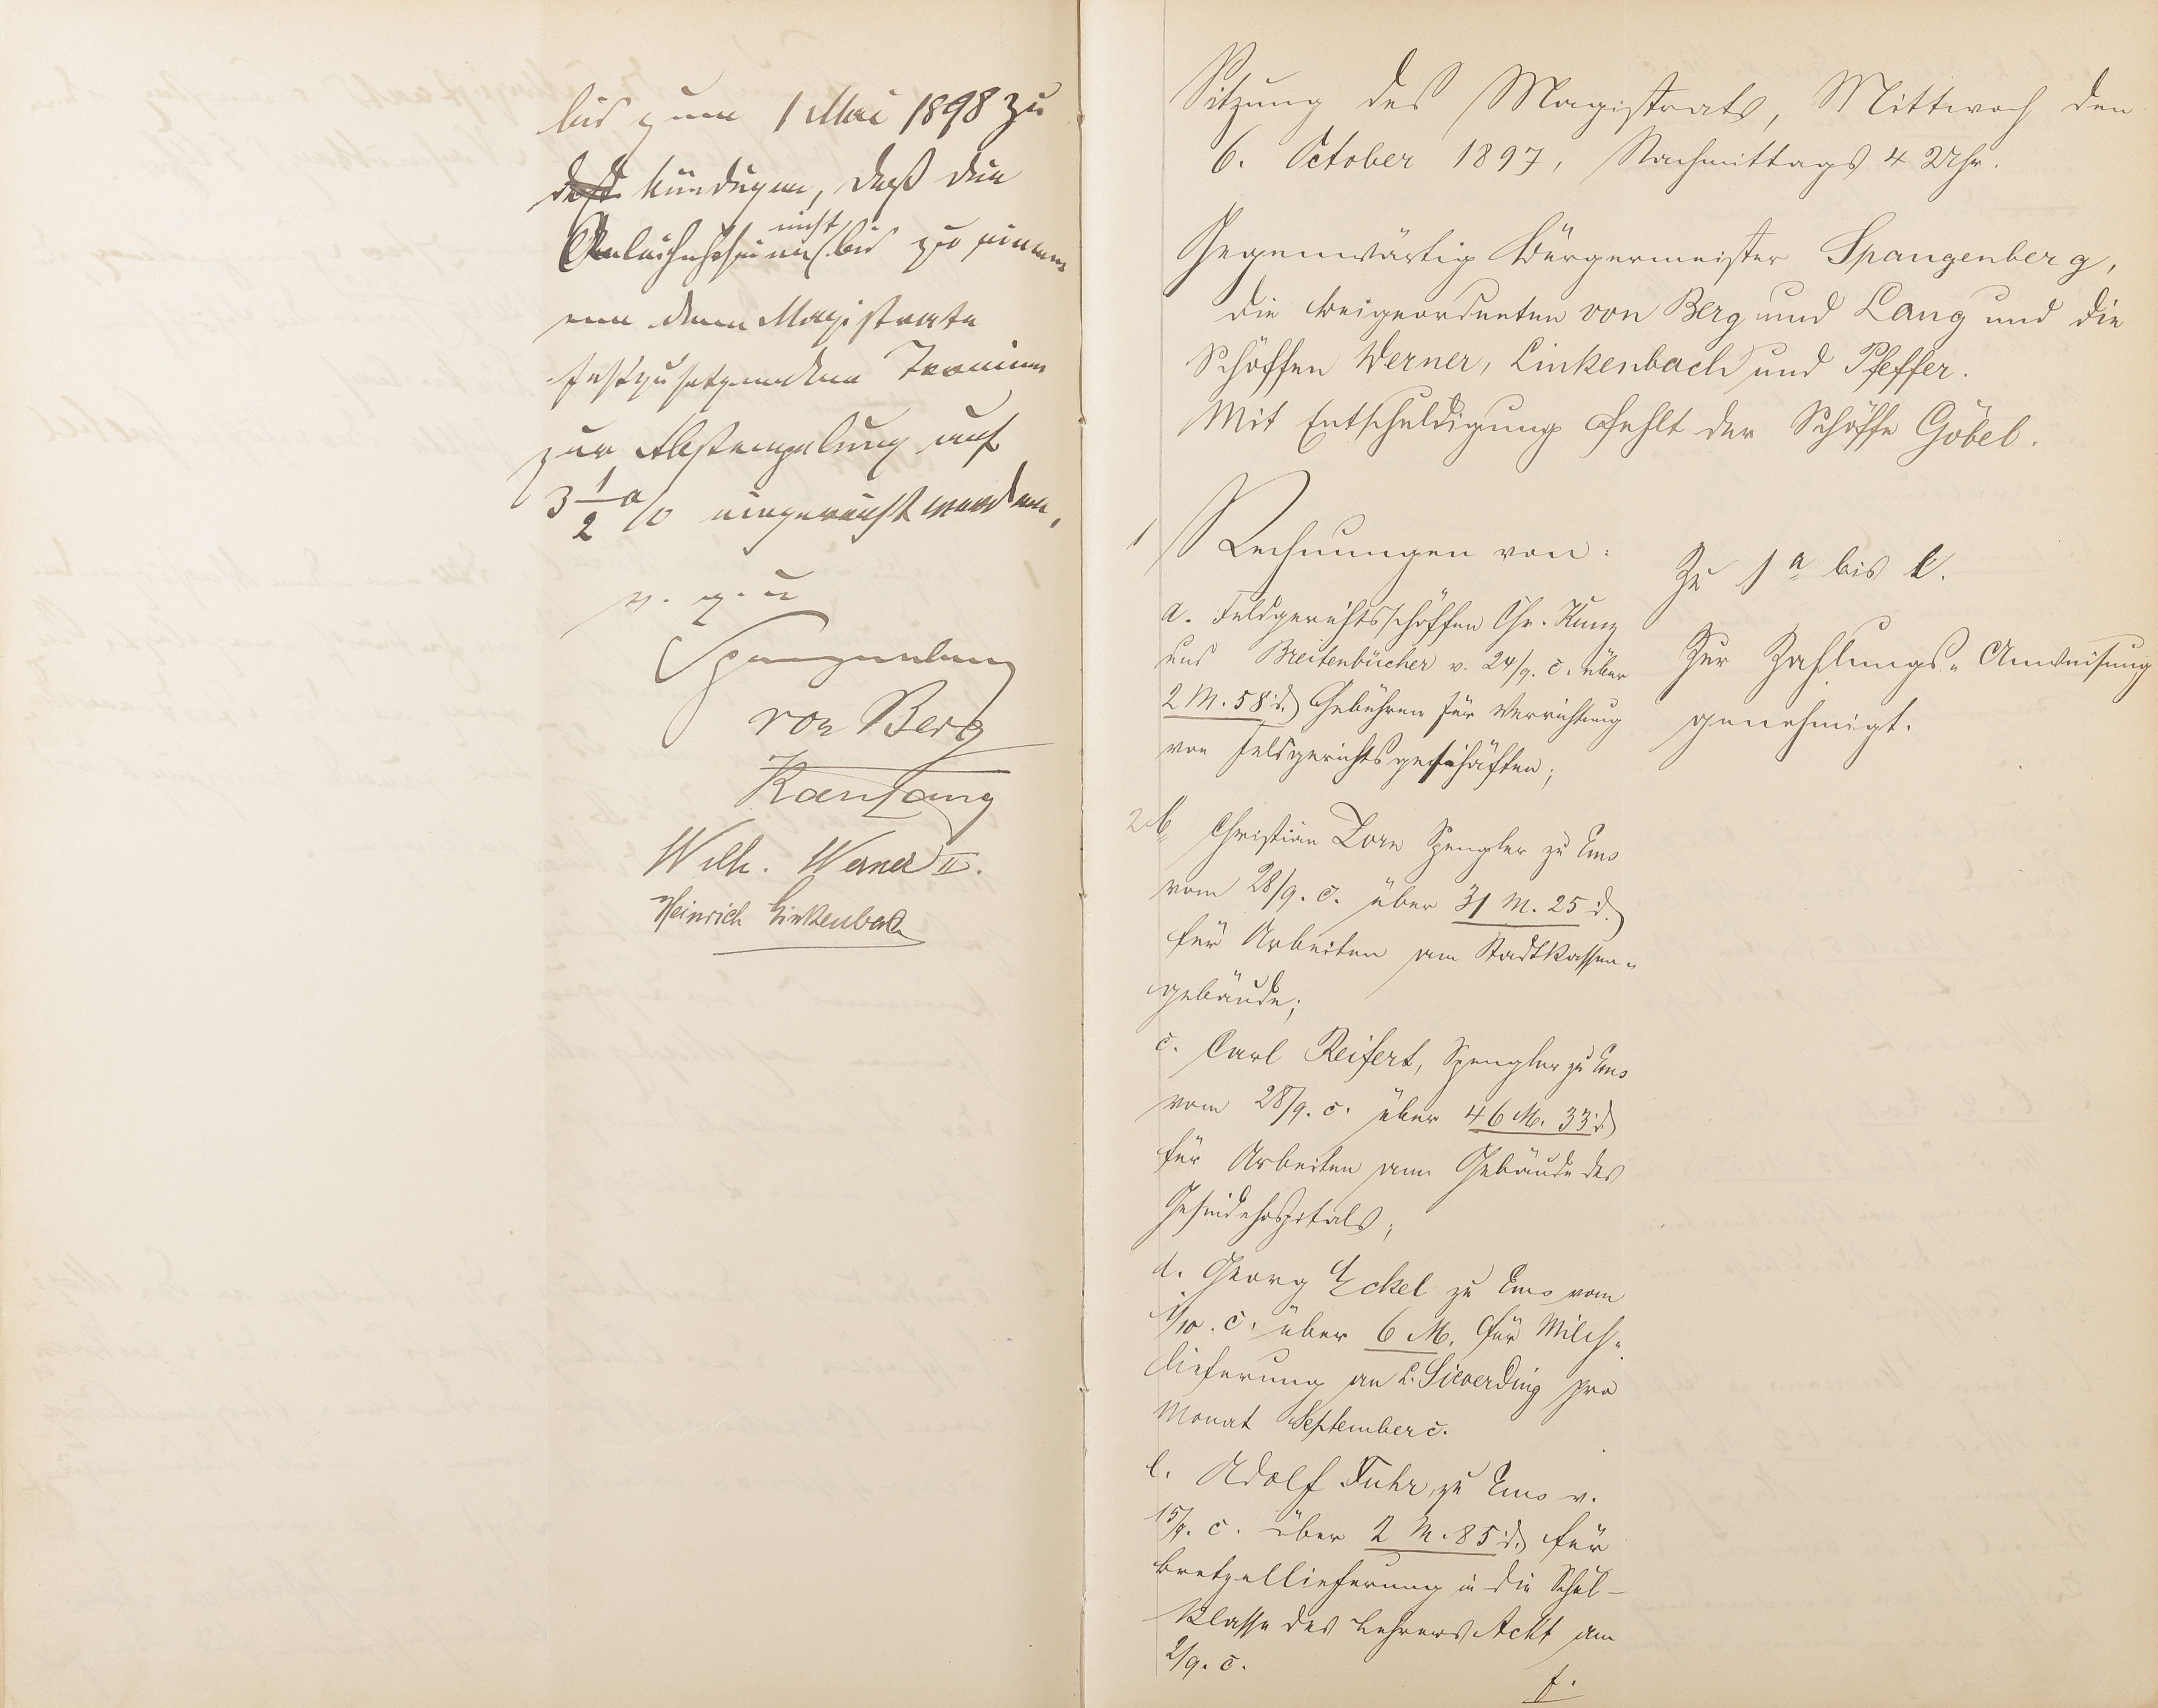 bis zum 1 Mai 1898 zu
kündigen, daß die
Anleihescheine nicht bis zu einem
von dem Magistrate
festzusetzenden Termine
zur Abstempelung auf
3 1/2 % eingereicht werden.
v. g. u
Spangenberg
von Berg
Karl Lang
Wilh. Werner II.
Heinrich Linkenbach
Sitzung des Magistrats, Mittwoch den
6. October 1897, Nachmittags 4 Uhr.
Gegenwärtig Bürgermeister Spangenberg,
die Beigeordneten von Berg und Lang und die
Schöffen Werner, Linkenbach und Pfeffer.
Mit Entschuldigung fehlt der Schöffe Göbel.
1 Rechnungen von:
a. Feldgerichtsschöffen Chr. Kunz
und Breitenbücher v. 24/9. c. über
2 M. 58 d. Gebühren für Verrichtung
von Feldgerichtsgeschäften;
2 b. Christian Zorn Spengler zu Ems
vom 28/9. c. über 31 M. 25 d.
für Arbeiten am Stadtkassen-
gebäude;
c. Carl Reifert, Spengler zu Ems
vom 28/9. c. über 46 M. 33 d.
für Arbeiten am Gebäude des
Gesindehospitals;
d. Georg Eckel zu Ems vom
1/10. c. über 6 M. für Milch-
lieferung an L. Sieverding pro
Monat September c.
e. Adolf Fuhr zu Ems v.
15/9. c. über 2 M. 85 d. für
Bretzellieferung in die Schul-
klasse des Lehrers Ackt am
2/9. c.
f.
Zu 1 a bis k.
Zur Zahlungs-Anweisung
genehmigt.